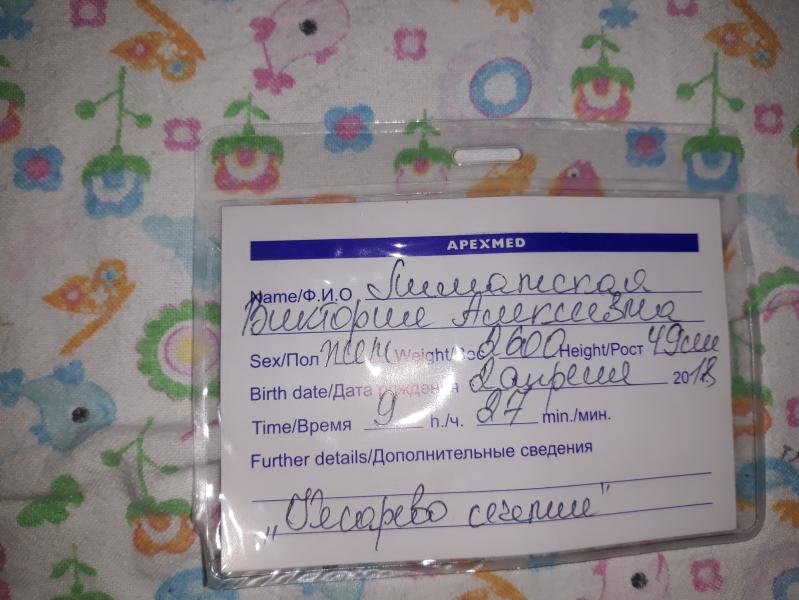 APEXMED
Name/Ф.И.О
Виктория Алексеевна
Sex/Пол жен Weight/Вес 2600 Height/Рост 49см
Birth date/Дата рождения 2 апреля 2018
Time/Время 9 h./ч. 27 min./мин.
Further details/Дополнительные сведения
„Кесарево сечение"